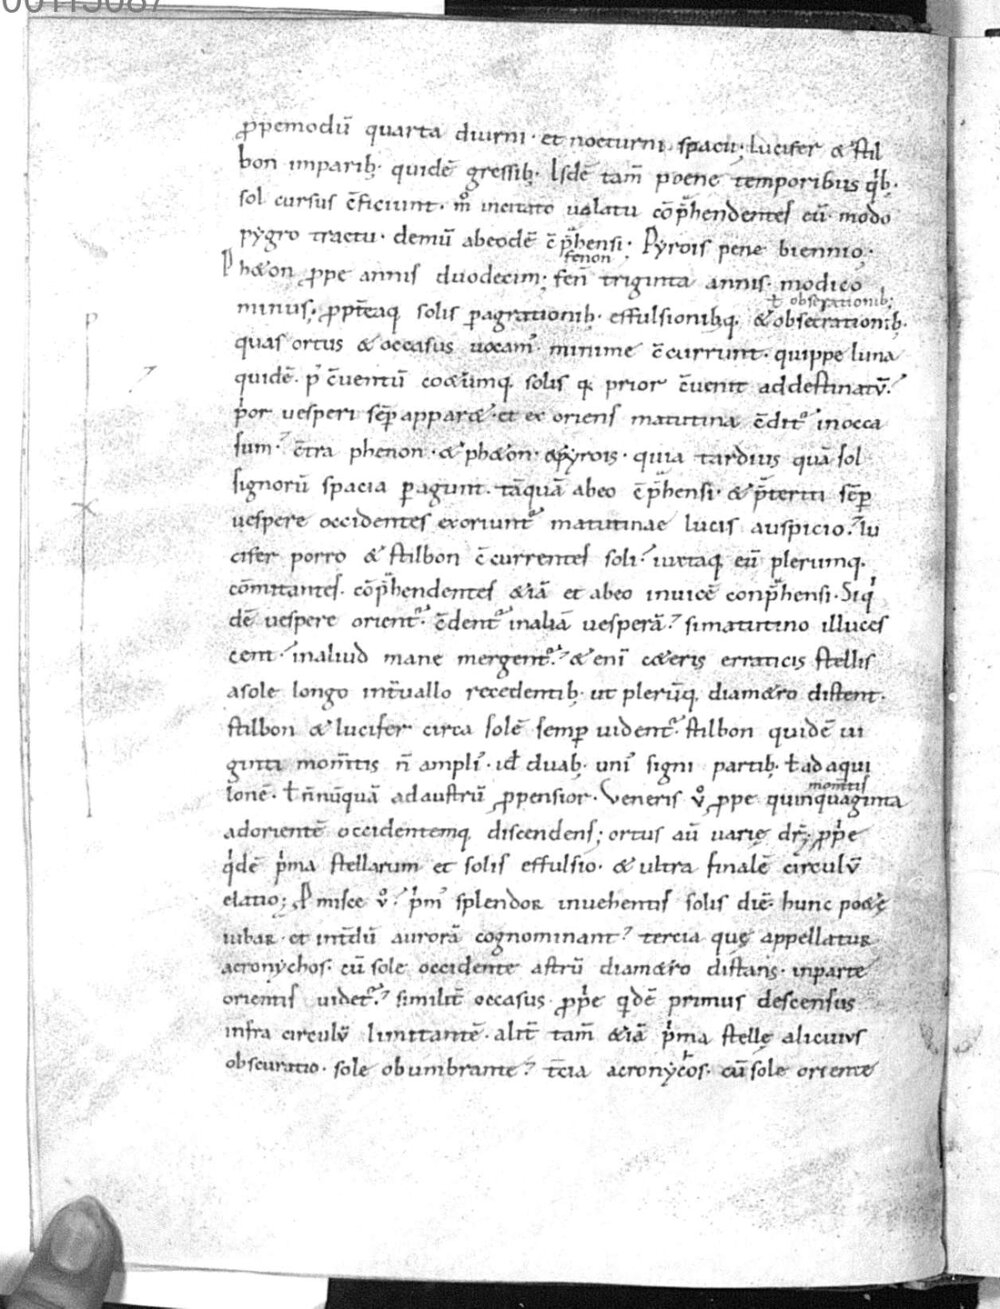 ꝓpemodũ quarta diurni · et nocturni spacii; lucifer & stil
bon imparib; · quidẽ gressib; · Isdẽ tam̃ poene temporibus qͥb; ·
sol cursus c̃ficiunt · m̊ incitato uolatu cõp̃hendentes eũ · modo
pygro tractu · demũ abeodẽ c̃p̃hensi · Pyrois pene biennio ·
Ph&on ꝓpe annis duodecim; fen̄ triginta annis · modico
fenon
minus; ꝓpt̃eaq; solis ꝑagrationib; · effulsionibq; · &obsecrationib; ·
ł obseruationib;
quas ortus & occasus uocam᷒ · minime c̃currunt · quippe luna
quidẽ · p᷒ c̃uentũ co&ũmq; solis q; prior c̃uenit addestinatũ ·
pͥor uesperi sep̃ appar& · et ex oriens matutina c̃dit᷒ inocca
sum · c̃tra phenon · & ph&on · &pyrois · quia tardius quã sol
signorũ spacia ꝑagunt · tãquã abeo c̃p̃hensi · & p̃teriti sep̃
uespere occidentes exoriunt᷒ matutinae lucis auspicio · lu
cifer porro & stilbon c̃currentes soli · iuxtaq; eũ plerumq; ·
cõmitantes · cõp̃hendentes &iã et abeo inuicẽ conp̃hensi · Siqͥ
dẽ uespere orient᷒ · c̃dent᷒ inaliã uesperã · simatutino illuces
cent · inaliud mane mergent᷒ · & enĩ c&eris erraticis stellis
asole longo int̃uallo recedentib; · ut plerũq; diam&ro distent ·
stilbon & lucifer circa solẽ semꝑ uident᷒ · stilbon quidẽ ui
ginti mom̃tis ñ ampli᷒ · id̄ duab; · uni᷒ signi partib; · ł ad aqui
lonẽ · ł ñnũquã adaustrũ ꝓpensior · Veneris ů ꝓpe quinquaginta
mom̃tis
adorientẽ occidentemq; discendens; ortus aũ uarię dr̃; ꝓpͥe
qͥdẽ pͥma stellarum et solis effulsio · & ultra finalẽ circulũ
elatio; ꝓmisce ů · pͥm᷒ splendor inuehentis solis diẽ · hunc po&ę
iubar · et int̃dũ aurorã cognominant · tercia quę appellatur
acronychos · cũ sole occidente astrũ diam&ro distans · inparte
orientis uidet᷒ · similit̃ occasus · ꝓpͥe qͥdẽ primus descensus
infra circulũ limitantẽ · alit̃ tam̃ &iã pͥma stellę alicuius
obscuratio · sole obumbrante · t̃cia acronycͪos · cũ sole oriente